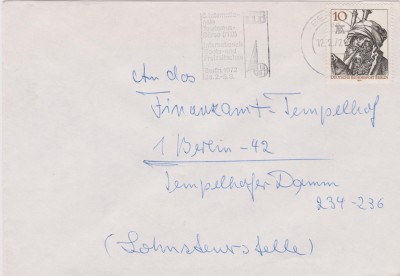 10
DEUTSCHE BUNDESPOST BERLIN
An das
Finanzamt-Tempelhof
1 Berlin-42
Tempelhofer Damm
234-236
(Lohnsteuerstelle)